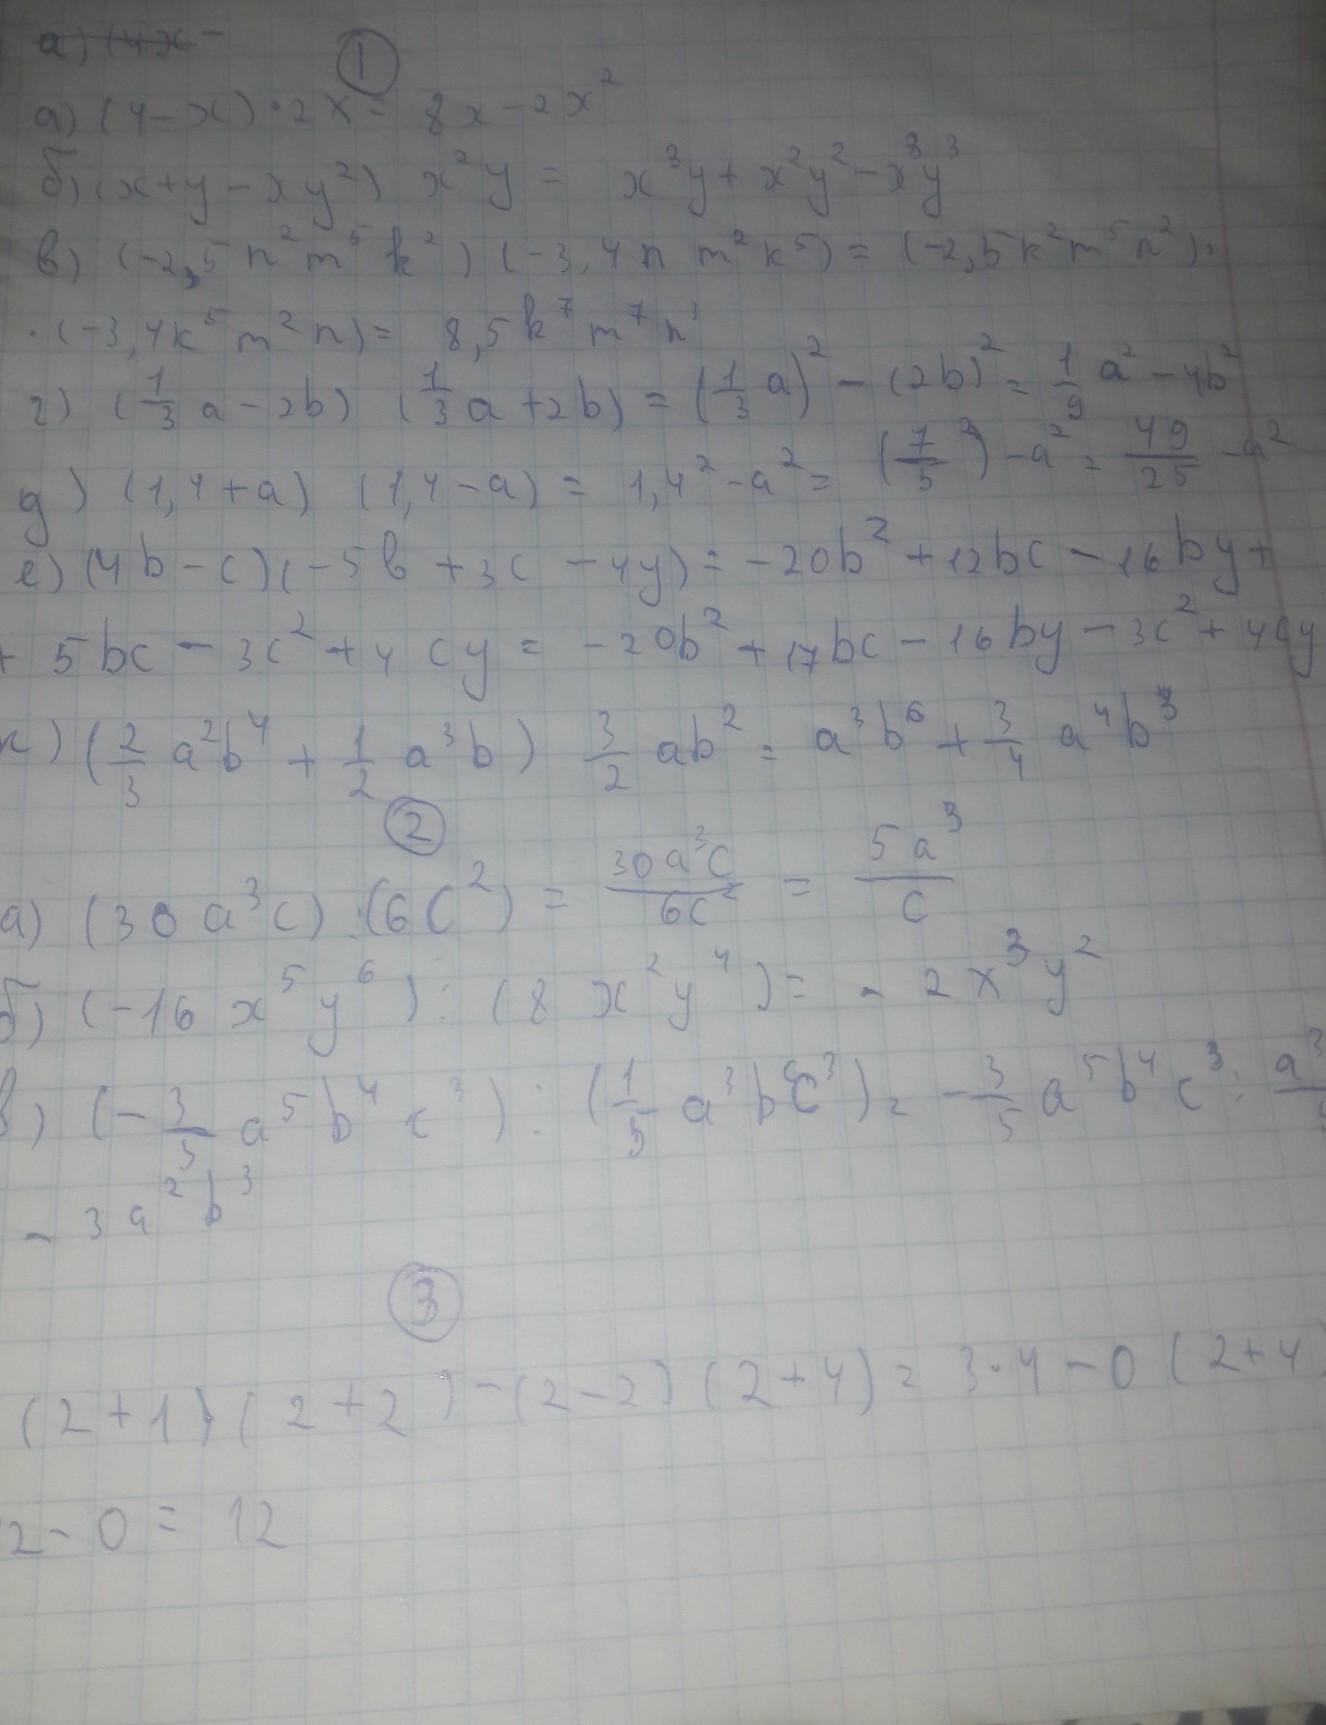 а) (4x-
①
а) (4-x)·2x = 8x-2x²
б) (x+y-xy²) x²y = x³y+x²y²-x³y³
в) (-2,5n²m⁵k²) (-3,4n m²k⁵) = (-2,5k²m⁵n²)·
·(-3,4k⁵m²n) = 8,5k⁷m⁷n³
г) (1/3 a-2b) (1/3 a+2b) = (1/3 a)² - (2b)² = 1/9 a²-4b²
д) (1,4+a) (1,4-a) = 1,4²-a² = (7/5)²-a² = 49/25 -a²
е) (4b-c)(-5b+3c-4y) = -20b²+12bc-16by+
+ 5bc-3c²+4cy = -20b²+17bc-16by-3c²+4cy
ж) (2/3 a²b⁴ + 1/2 a³b) 3/2 ab² = a³b⁶ + 3/4 a⁴b³
②
а) (30a³c) : (6c²) = 30a³c/6c² = 5a³/c
б) (-16x⁵y⁶) : (8x²y⁴) = -2x³y²
в) (-3/5 a⁵b⁴c³) : (1/5 a³bc³) = -3/5 a⁵b⁴c³ : a³
- 3a²b³
③
(2+1)(2+2)-(2-2)(2+4) = 3·4-0(2+4)
2-0 = 12